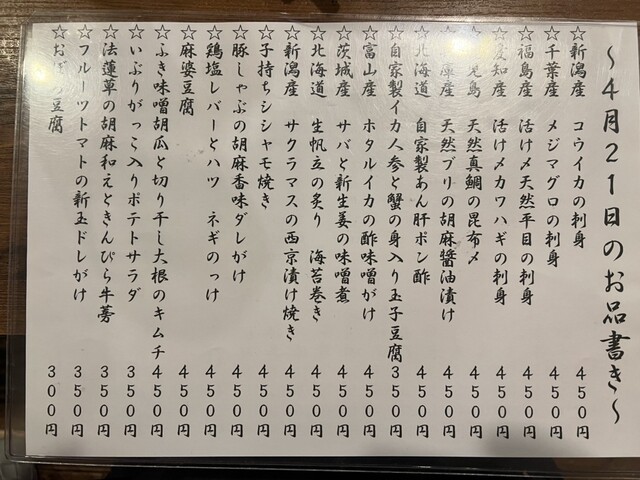 ～４月２１日のお品書き～
☆新潟産　コウイカの刺身　４５０円
☆千葉産　メジマグロの刺身　４５０円
☆福島産　活け〆天然平目の刺身　４５０円
☆愛知産　活け〆カワハギの刺身　４５０円
児島　天然真鯛の昆布〆　４５０円
庫産　天然ブリの胡麻醤油漬け　４５０円
☆北海道　自家製あん肝ポン酢　４５０円
☆自家製イカ人参と蟹の身入り玉子豆腐　３５０円
☆富山産　ホタルイカの酢味噌がけ　４５０円
☆茨城産　サバと新生姜の味噌煮　４５０円
☆北海道　生帆立の炙り　海苔巻き　４５０円
☆新潟産　サクラマスの西京漬け焼き　４５０円
☆子持ちシシャモ焼き　４５０円
☆豚しゃぶの胡麻香味ダレがけ　４５０円
☆鶏塩レバーとハツ　ネギのっけ　４５０円
☆麻婆豆腐　４５０円
☆ふき味噌胡瓜と切り干し大根のキムチ　４５０円
☆いぶりがっこ入りポテトサラダ　３５０円
☆法蓮草の胡麻和えときんぴら牛蒡　３５０円
☆フルーツトマトの新玉ドレがけ　３５０円
☆お　豆腐　３００円